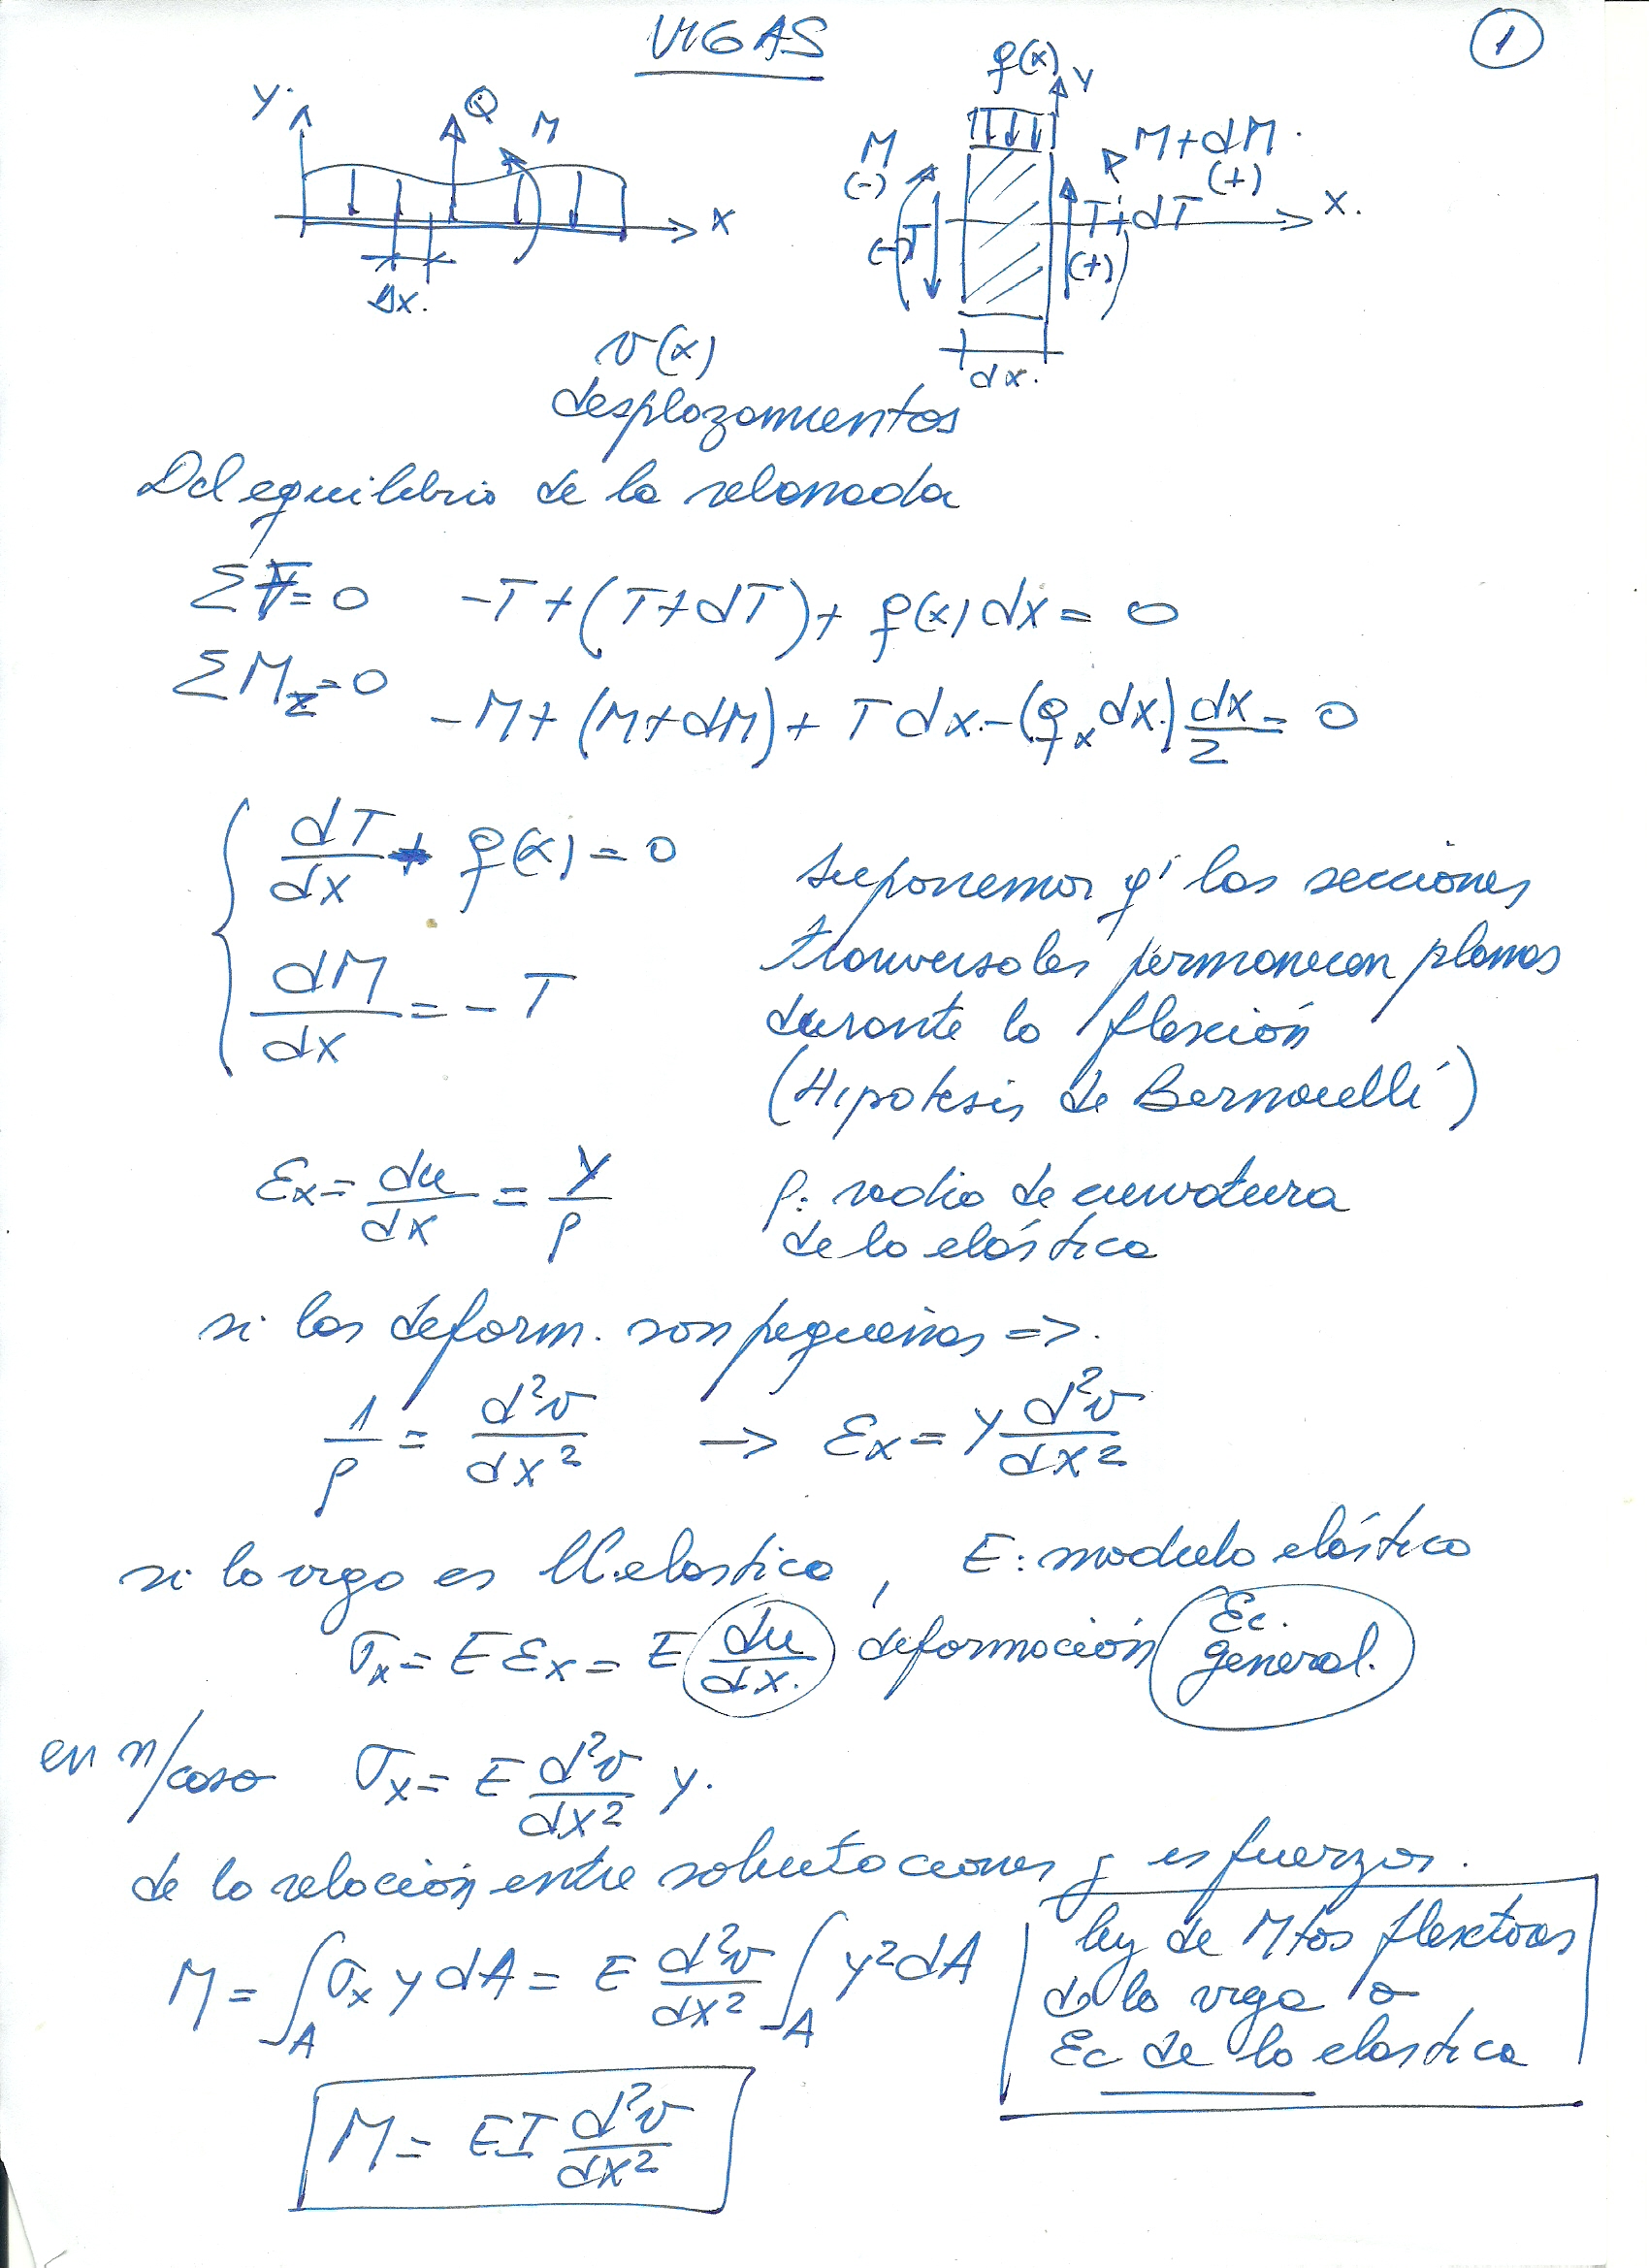 VIGAS
1
Y
Q
M
X
Δx.
q(x)
Y
M
(-)
M+dM
(+)
X.
T+dT
(-)
T
(+)
dx.
v(x)
desplazamientos
Del equilibrio de la rebanada
ΣF=0 -T+(T+dT)+ q(x)dx = 0
ΣMz=0 -M+(M+dM)+ T dx-(qx dx)dx/2 = 0
dT/dx + q(x)=0
dM/dx = - T
suponemos q' las secciones
transversales permanecen planas
durante la flexión
(Hipotesis de Bernouelli)
εx= du/dx = y/ρ
ρ: radio de curvatura
de la elástica
si las deform. son pequeñas =>.
1/ρ = d²v/dx² -> εx= y d²v/dx²
si la viga es ll.elastica, E: modulo elástico
σx= E εx= E du/dx. deformación Ec. general.
en n/caso σx= E d²v/dx² y.
de la relación entre solicitaciones y esfuerzos.
M= ∫A σx y dA = E d²v/dx² ∫A y²dA
ley de Mtos flextores
de la viga o
Ec de la elastica
M= EI d²v/dx²